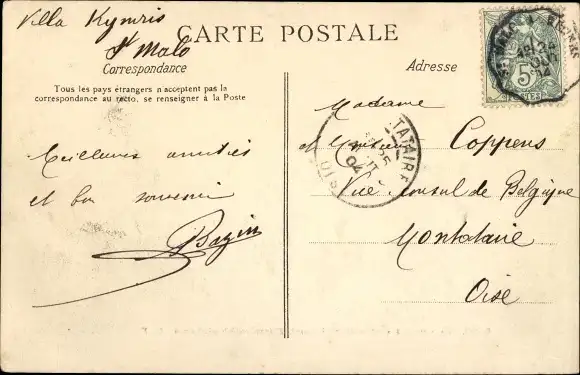 Villa Kymris
St Malo
CARTE POSTALE
Correspondance
Adresse
Tous les pays étrangers n'acceptent pas la
correspondance au recto, se renseigner à la Poste
Meilleures amitiés
et bon souvenir
Bazin
Madame
et Monsieur Coppens
Vice Consul de Belgique
Montataire
Oise
5
POSTES
MONTATAIRE
OISE
04